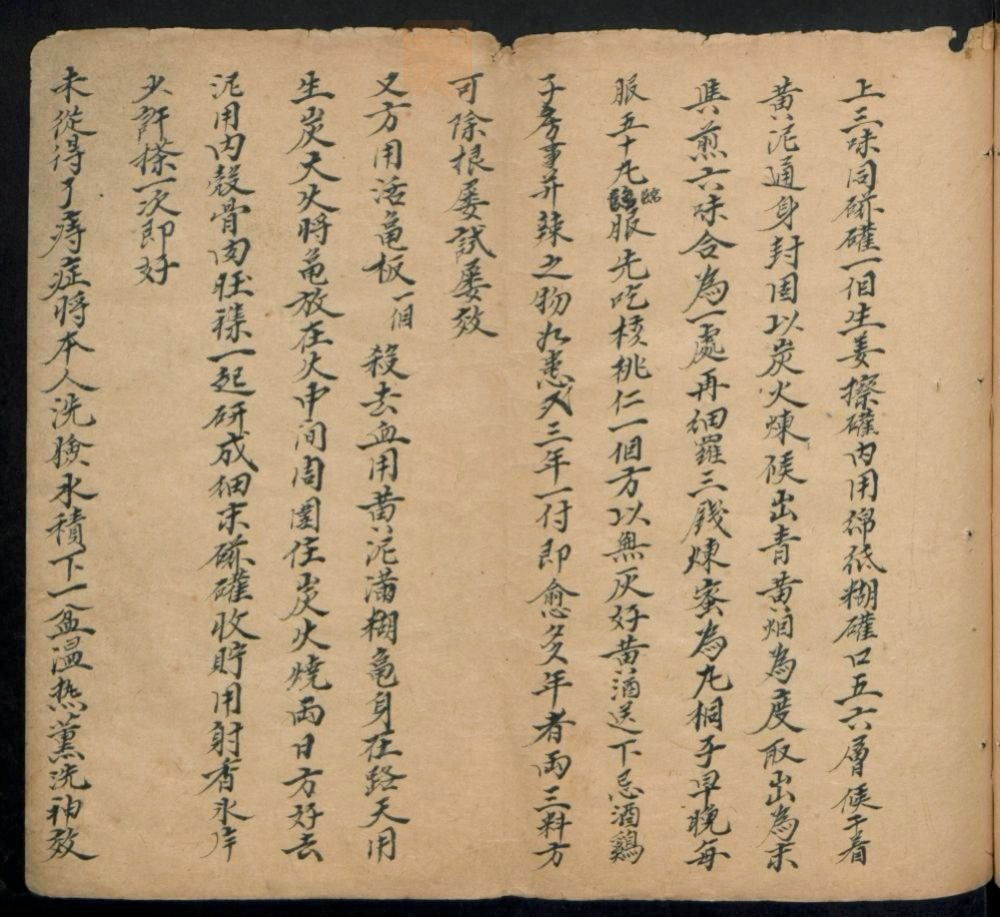 上三味同磁礶一個生姜擦礶内用綿紙糊礶口五六層候干着
黄泥通身封固以炭火煉候出青黄烟為度取出為末
與煎六味合為一處再細羅三戔煉蜜為丸桐子早晚每
服五十丸臨服先吃核桃仁一個方以無灰好黄酒送下忌酒鷄
子房事并辣之物如患久三年一付即愈多年者両三料方
可除根屡試屡效
又方用活亀板一個 殺去血用黄泥满糊亀身在路天用
生炭火将亀放在火中间周圍住炭火燒両日方好去
泥用内殼骨肉 一起研成細末磁礶收貯用射香氷片
少許搽一次即好
未從得了痔症將本人洗臉水積下一盆温热薫洗神效